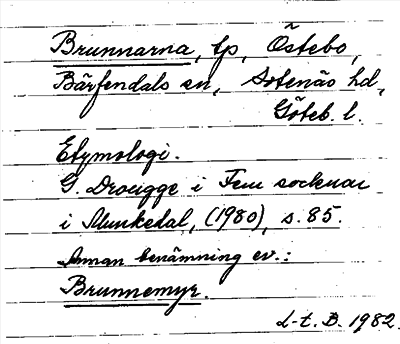 Brunnarna, tp, Östebo,
Bärfendals sn, Sotenäs hd,
Göteb. l.
Etymologi.
G. Drougge i Fem socknar
i Munkedal, (1980), s. 85.
Annan benämning ev.:
Brunnemyr.
L-t. B. 1982.